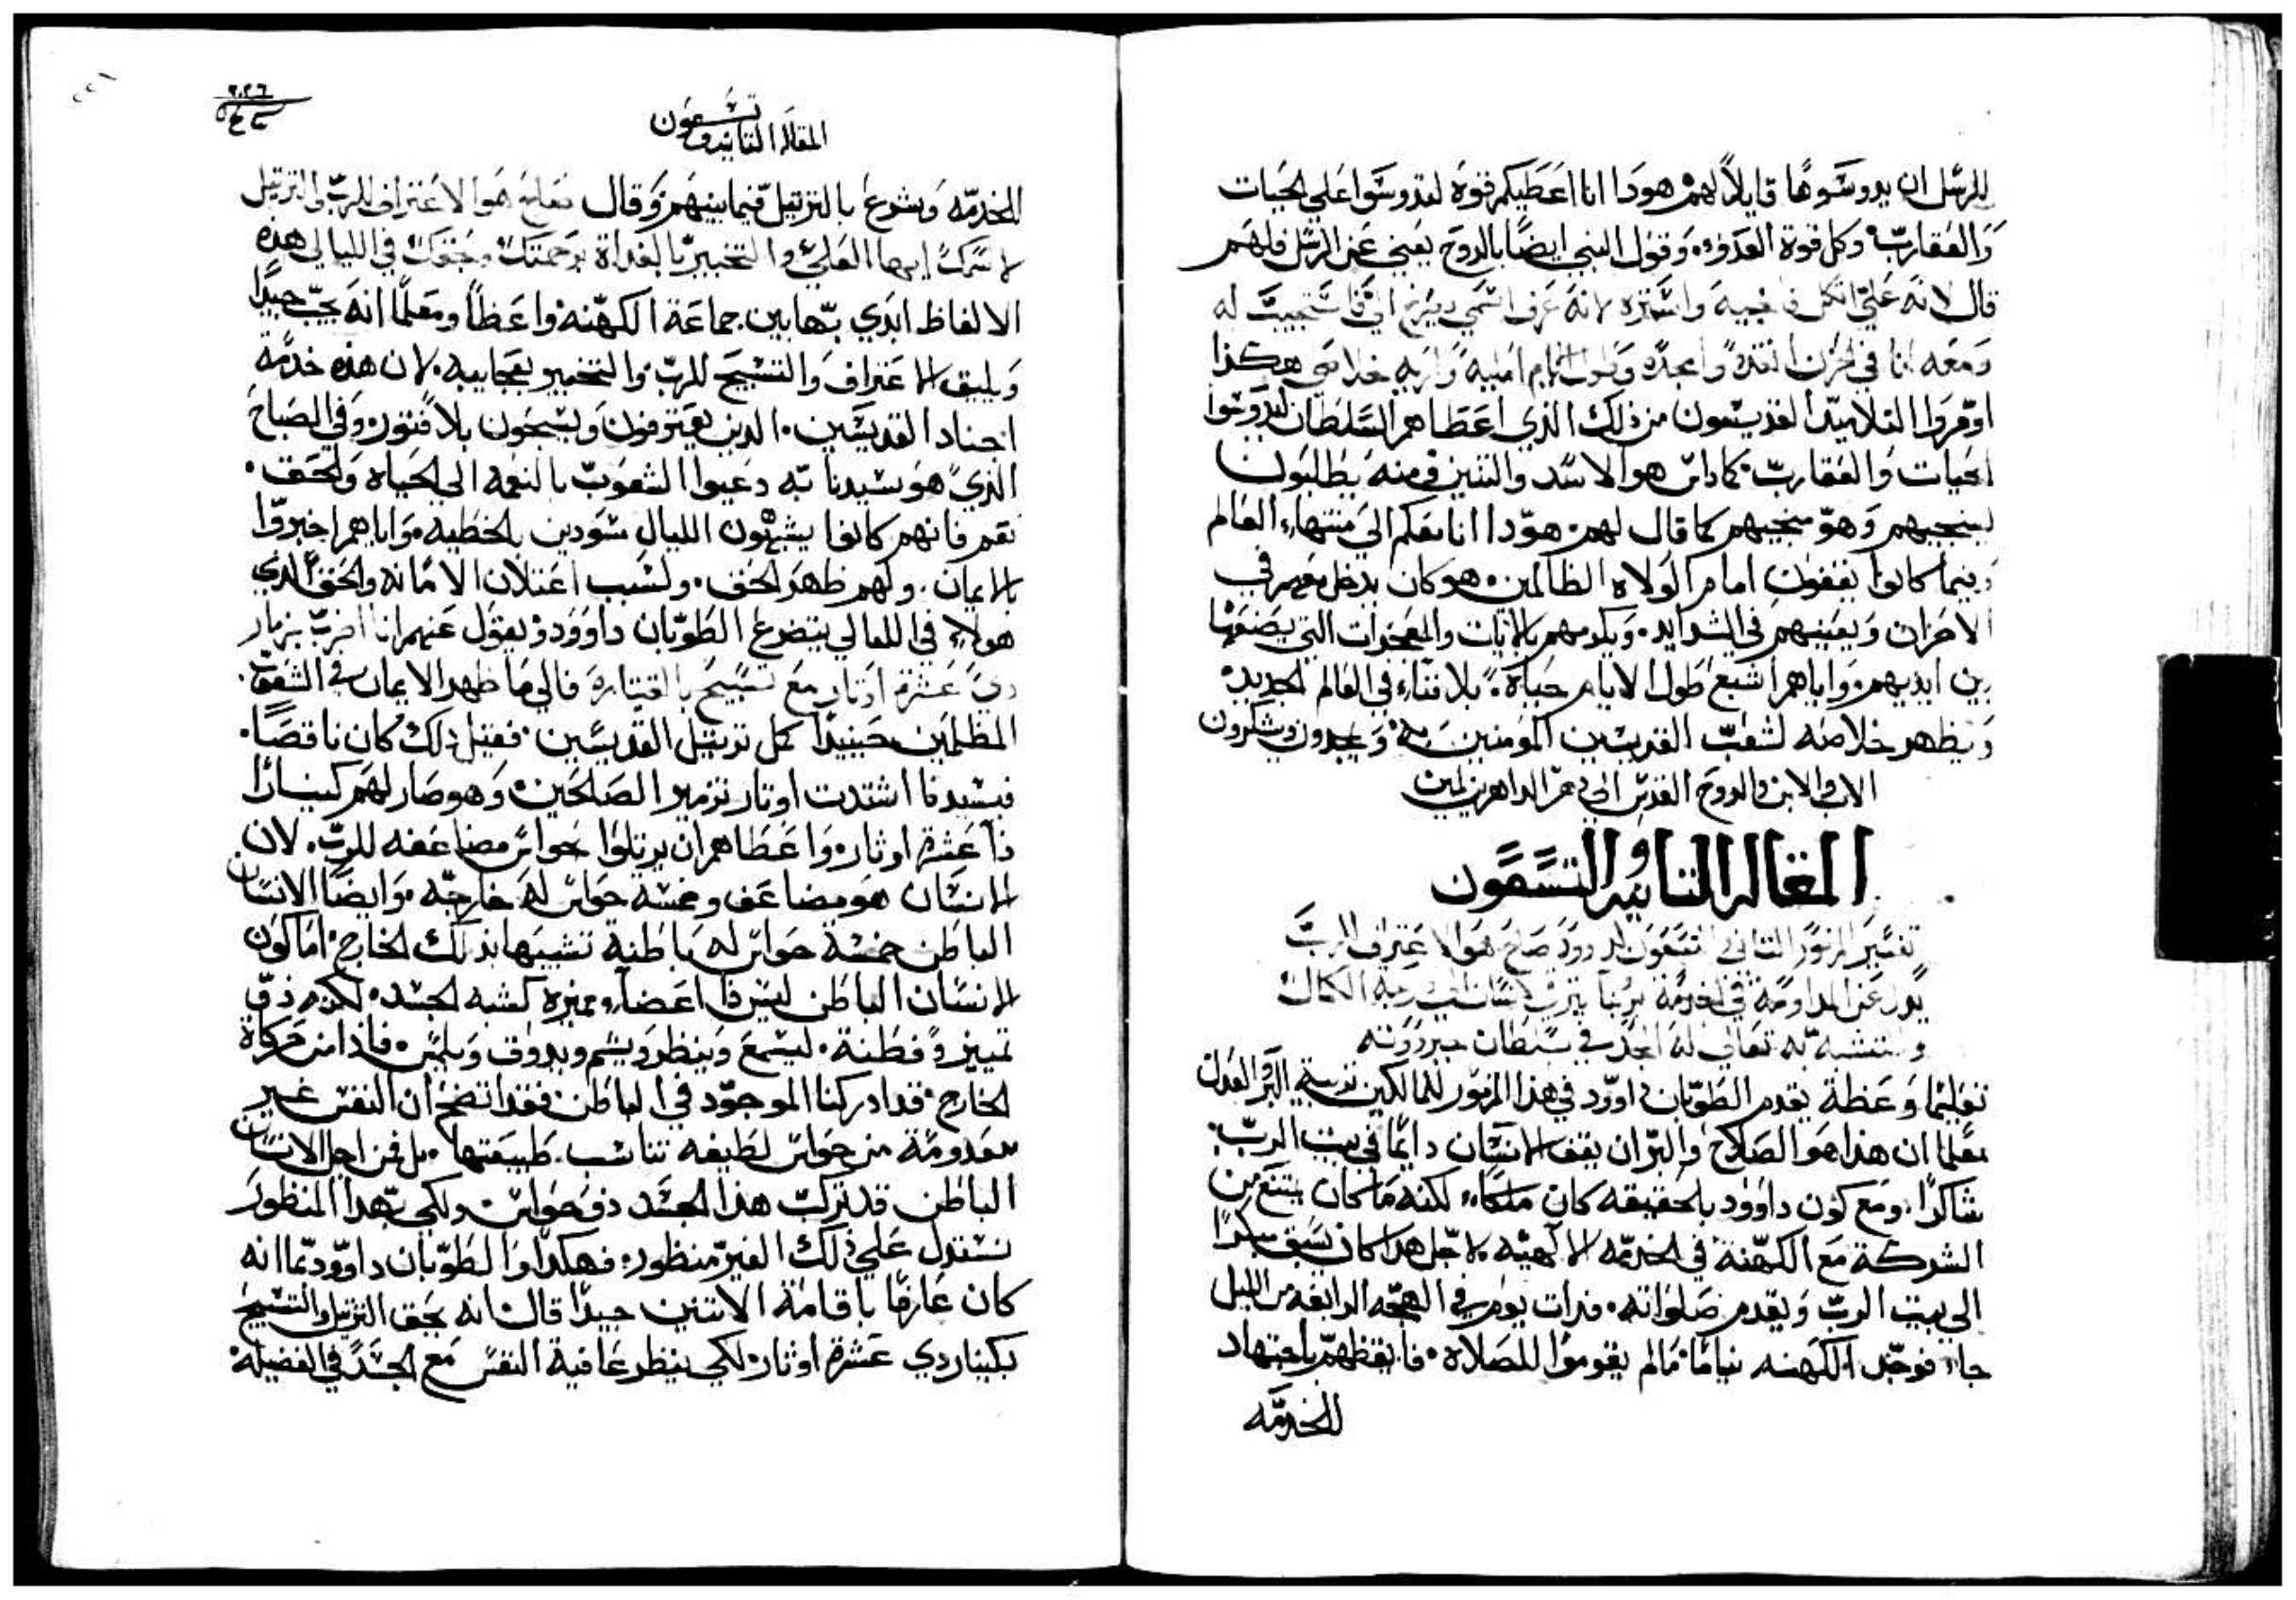 للرسل ان يدوسوها قايلاً لهم هودا انا اعطيكم قوة لتدوسوا علي الحيات
والعقارب وكل قوة العدو. وقول النبي ايضًا بالروح يعني عن الرسل فلهم
قال لانه عليّ اتكل فانجيه واستره لانه عرف اسمي يصرخ اليّ فاستجيب له
ومعه انا في الحزن انقذه وامجده وطول الايام امليه واريه خلاصي هكذا
التلاميذ القديسون من ذلك الذي اعطاهم السلطان ليدوسوا
الحيات والعقارب. كما داس هو الاسد والتنين فمنه يطلبون
لينجيهم وهو منجيهم كما قال لهم هودا انا معكم الي منتهاء العالم
وبينما كانوا يقفون امام الولاه الظالمين. هو كان يدخل معهم في
الاحزان ويعينهم في الشدايد. ويكرمهم بالايات والمعجزات التي يصنعها
بين ايديهم. واياهم اشبع طول الايام حياة. بلا فناء في العالم الجديد.
ويظهر خلاصه لشعب القديسين المومنين به. ويمجدون ويشكرون
الاب والابن والروح القدس الي دهر الداهرين امين
المقاله التانيه والتسعون
تفسير المزمور التاني والتسعون لداوود صالح هو الاعتراف للرب
يدل عن المداومة في الخدمة
والتشبه به تعالي له المجد في
تعليمًا وعظة يقدم الطوبان داوود في هذا المزمور للمالكين البر والعدل
معلمًا ان هذا هو الصلاح والبر ان يقف الانسان دايمًا في بيت الرب.
شاكرًا. ومع كون داوود بالحقيقه كان ملكاء. لكنه ما كان يمتنع من
الشركة مع الكهنة في الخدمه الالاهيه لاجل هذا كان يسبق مبكرًا
الي بيت الرب ويقدم صلواته. فذات يوم في الهجعه الرابعه من الليل
جاء فوجد الكهنه نيامًا. مالم يقوموا للصلاه. فايقظهم باجتهاد
للخدمه
المقاله التانيه وتسعون
للخدمه وشرع بالترتيل فيما بينهم وقال صالح هو الاعتراف للرب والترتيل
لاسمك ايها العلي والتخبير بالغداة برحمتك وبحقك في الليالي هذه
الالفاظ ابدي بها بين جماعة الكهنه واعظًا ومعلمًا انه يجب جيدًا
ويليق الاعتراف والتسبيح للرب والتخبير بعجايبه. لان هذه خدمة
اجناد القديسين. الدين يعترفون ويسبحون بلا فتور. وفي الصباح
الذي هو سيدنا به دعيوا الشعوب بالنعمه الي الحياه والحق.
نعم فانهم كانوا يشبهون الليال سودين بالخطيه. واياهم اخبروا
بالايمان. ولهم ظهر الحق. ولسبب اعتلان الامانه والحق الذي
هولاء في الليالي يتضرع الطوبان داوود ويقول عنهم انا اضرب بمزمار
ذي عشرة اوتار مع تسبيح بالقيتاره فالي ما ظهر الايمان في الشعوب
المظلمين. حينيذًا كمل ترتيل القديسين. فقبل ذلك كان ناقصًا.
فبسيدنا اشتدت اوتار تزمير الصالحين. وهو صار لهم كينارًا
ذا عشرة اوثار. واعطاهم ان يرتلوا بحواس مضاعفه للرب. لان
الانسان هو مضاعف وخمسه حواس له خارجه. وايضًا الانسان
الباطن خمسة حواس له باطنية تشبيهًا بذلك الخارج. اما كون
الانسان الباطن ليس ذا اعضاء مميزه كشبه الجسد. لكنه ذو
تمييز وفطنة. ليسمع وينظر ويشم ويدوق ويلمس. فاذا من حركاة
الخارج. قد ادركنا الموجود في الباطن. فقد اتضح ان النفس غير
معدومة من حواس لطيفه تناسب طبيعتها. بل فمن اجل الانسان
الباطن قد تركب هذا الجسد ذو حواس. ولكي بهدا المنظور
نستدل علي ذلك الغير منظور. فهكدا والطوبان داوود بما انه
كان عارفًا باقامة الاتنين جيدًا قال انه بحق الترتيل والتسبيح
بكينار دي عشرة اوثار. لكي ينظر عافية النفس مع الجسد في الفضيله.